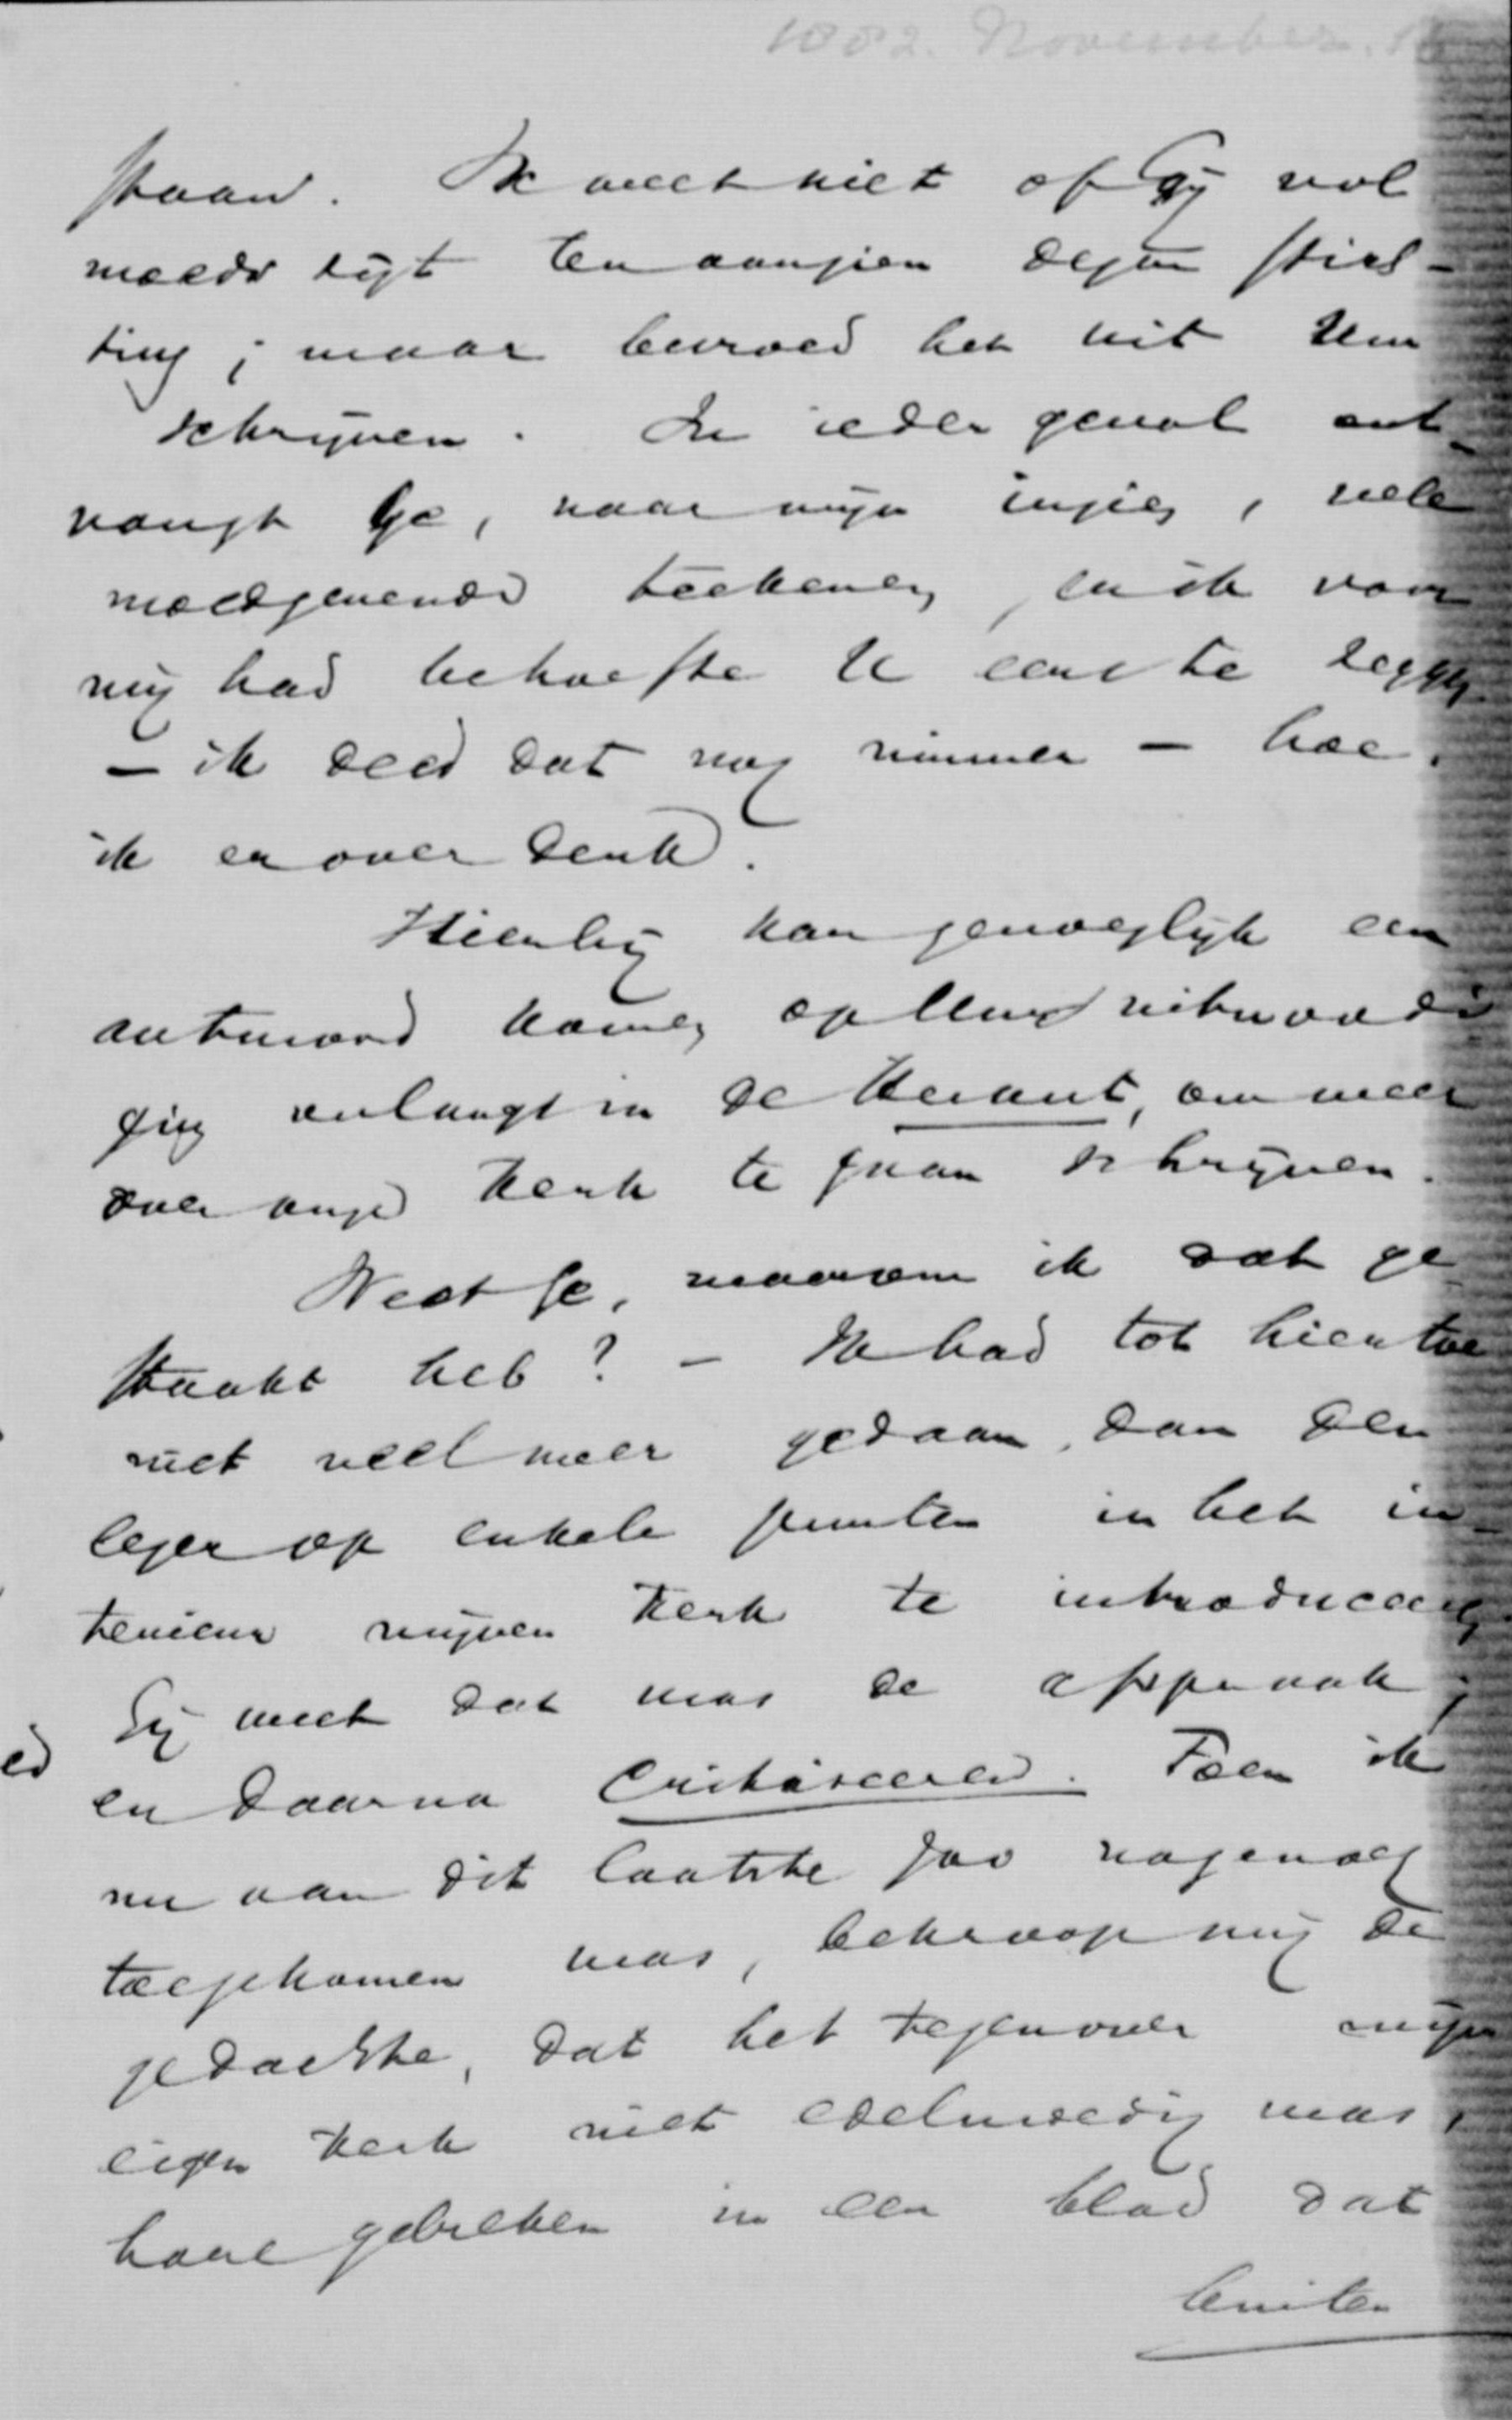 1882. November.
staan. Ik weet niet of Gij vol
moeds zijt ten aanzien dezer stich-
ting; maar bevroed het uit Uw
schrijven. In ieder geval ont-
vangt Ge, naar mijn inzien, vele
moedgevende teekenen, en ik voor
mij had behoefte U eens te zeggen
– ik deed dat nog nimmer – hoe
ik er over denk.
Hierbij kan gevoeglijk een
antwoord komen op Uwe uitnoodi-
ging onlangs in de Heraut, om meer
over onze Kerk te gaan schrijven.
Weet Ge, waarom ik dat ge
staakt heb? – Ik had tot hiertoe
niet veel meer gedaan, dan den
lezer op enkele punten in het in-
terieur mijner Kerk te introduceeren
Gij weet dat was de afspraak;
en daarna critiseeren. Toen ik
nu aan dit laatste zoo nagenoeg
toegekomen was, bekroop mij de
gedachte, dat het tegenover mijn
eigen Kerk niet edelmoedig was,
hare gebreken in een blad dat
buiten
ed